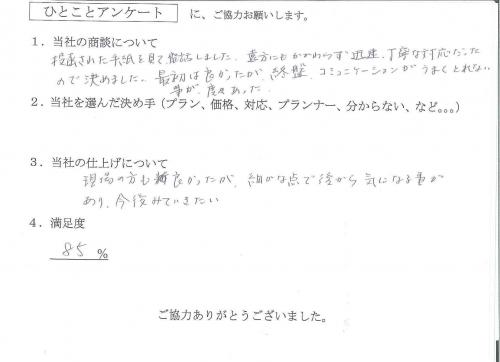 ひとことアンケート に、ご協力お願いします。
1．当社の商談について
投函された手紙を見て電話しました。遠方にもかかわらず迅速、丁寧な対応だった
ので決めました。最初は良かったが、終盤、コミュニケーションがうまくとれない
事が、度々あった。
2．当社を選んだ決め手（プラン、価格、対応、プランナー、分からない、など。。。）
3．当社の仕上げについて
現場の方も良かったが、細かな点で後から気になる事が
あり、今後みていきたい
4．満足度
85 %
ご協力ありがとうございました。